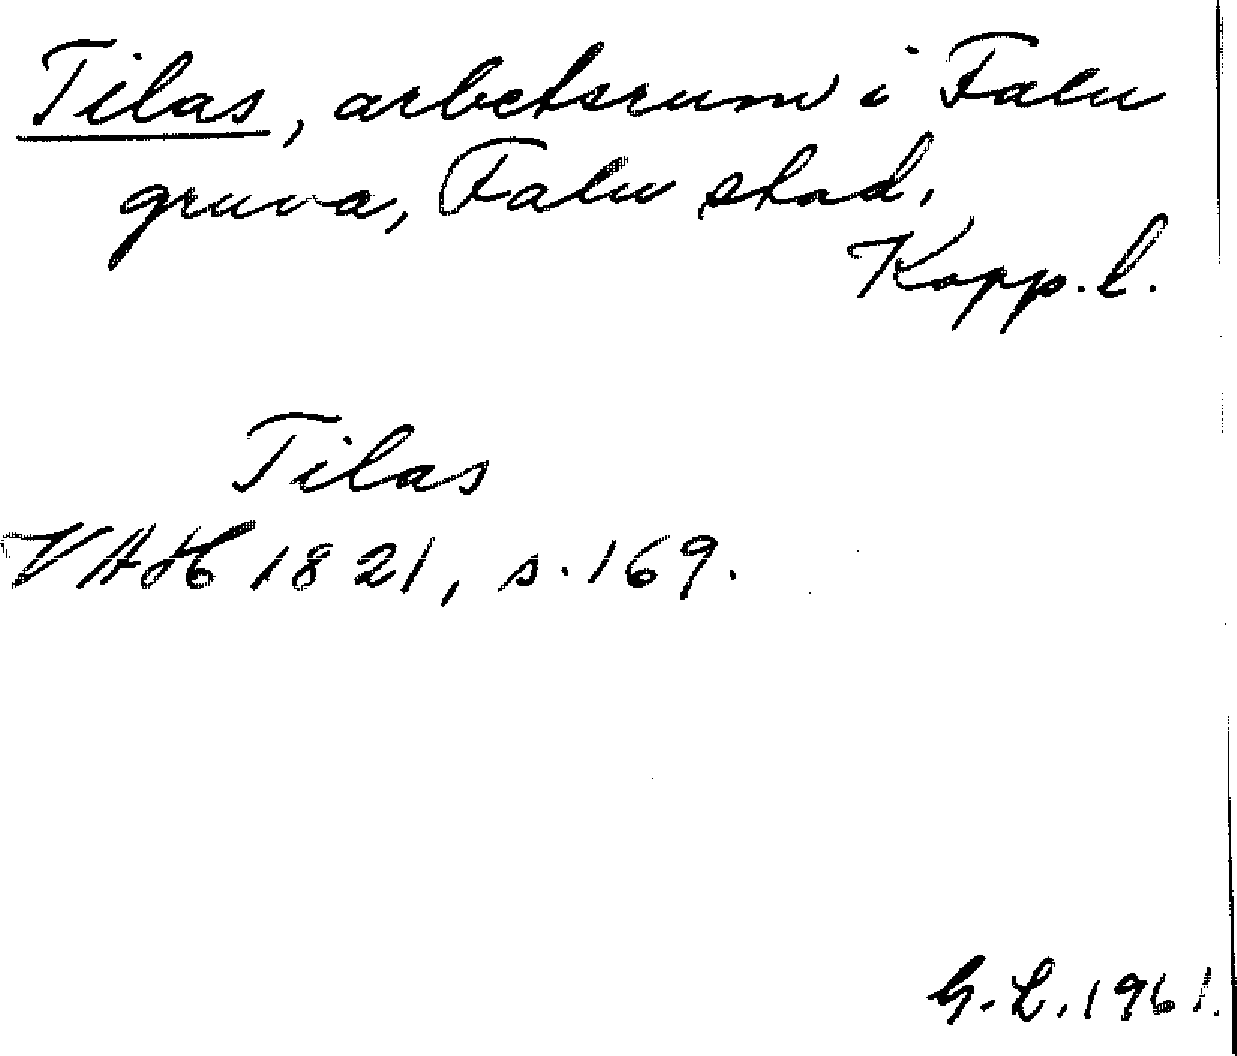 Tilas, arbetsrum i Falu
gruva, Falu stad,
Kopp. l.
Tilas
VAH 1821, s. 169.
G. L. 1961.